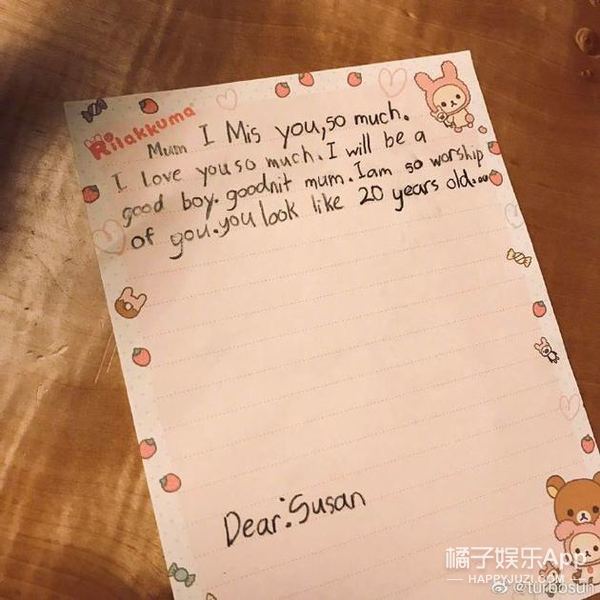 Rilakkuma
Mum I Mis you,so much.
I love you so much.I will be a
good boy.goodnit mum.Iam so worship
of you.you look like 20 years old...
Dear:Susan
橘子娱乐App
HAPPYJUZI.COM
@turbosun